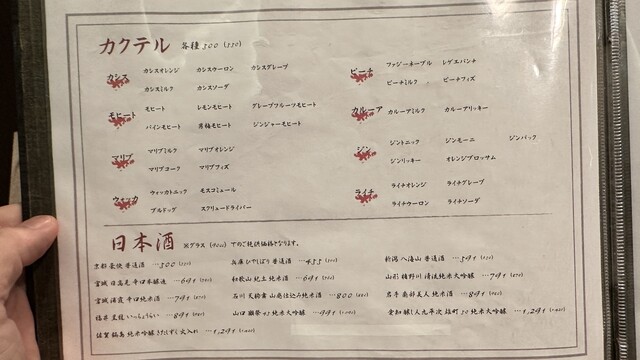 カクテル 各種500(550)
カシス カシスオレンジ カシスウーロン カシスグレープ
カシスミルク カシスソーダ
モヒート モヒート レモンモヒート グレープフルーツモヒート
パインモヒート 男梅モヒート ジンジャーモヒート
マリブ マリブミルク マリブオレンジ
マリブコーク マリブフィズ
ウォッカ ウォッカトニック モスコミュール
ブルドッグ スクリュードライバー
ピーチ ファジーネーブル レゲエパンチ
ピーチミルク ピーチフィズ
カルーア カルーアミルク カルーアリッキー
ジン ジントニック ジンモーニ ジンバック
ジンリッキー オレンジブロッサム
ライチ ライチオレンジ ライチグレープ
ライチウーロン ライチソーダ
日本酒 ※グラス でのご提供価格となります。
京都 豪快 普通酒 …500(550)
宮城 日高見 辛口本醸造 …691
宮城 浦霞 辛口純米酒 …791
福井 黒龍 いっちょらい …891
佐賀 鍋島 純米吟醸 きたしずく 火入れ …1,291
兵庫 ひやしぼり 普通酒 …455
和歌山 紀土 純米酒 …691
石川 天狗舞 山廃仕込み純米酒 …800
山口 獺祭45 純米大吟醸 …991
新潟 八海山 普通酒 …591
山形 楯野川 清流純米大吟醸 …791
岩手 南部美人 純米酒 …891
愛知 醸し人九平次 雄町50 純米大吟醸 …1,291